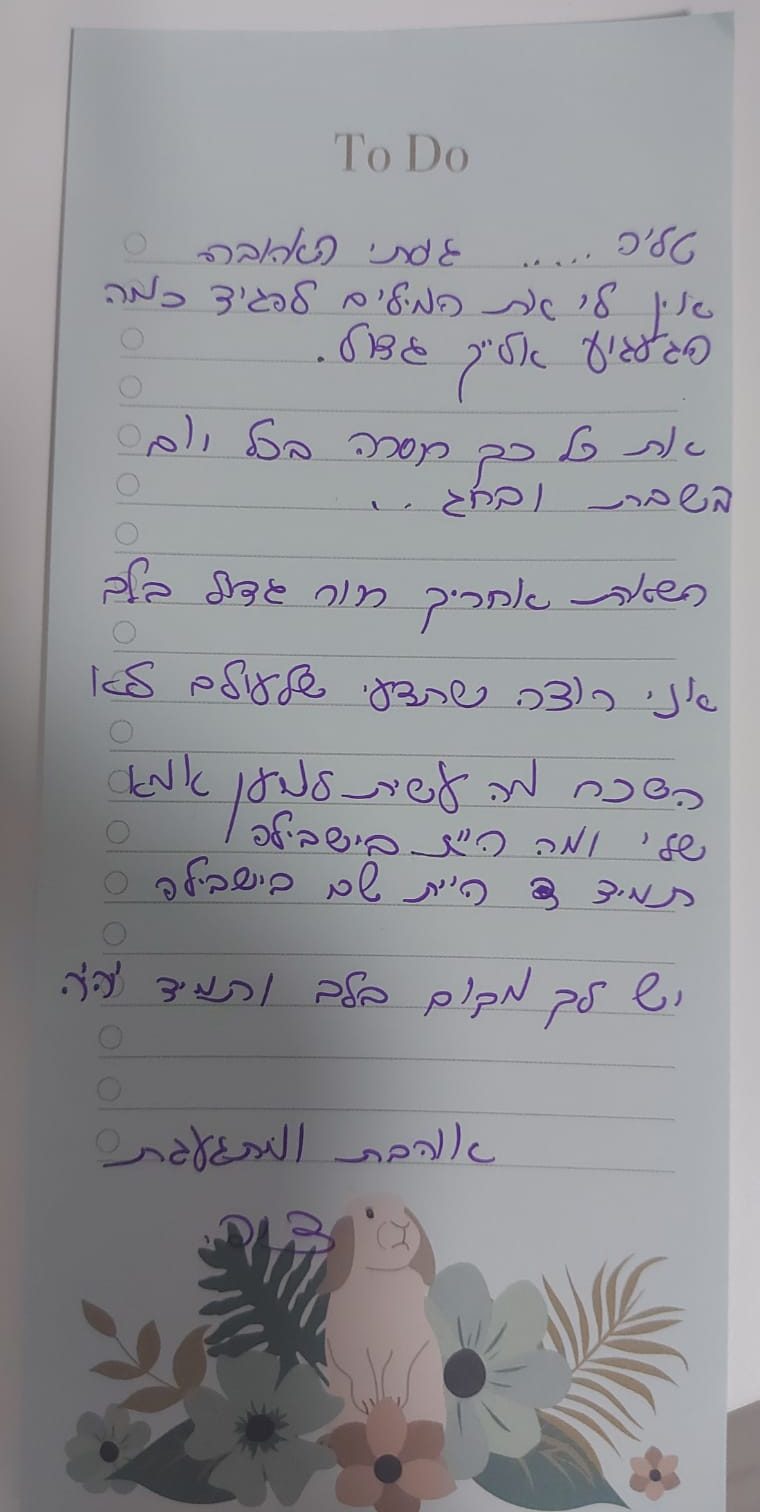 To Do
טליה ..... גסתי האהובה
אין לי את המילים להגיד כמה
הגעגוע אלייך גדול.
את כל כך חסרה בכל יום
בשבת ובחג ..
השארת אחריך חור גדול בלב
אני רוצה שתדעי שלעולם לא
השכח מה עשית למען אמא
שלי ומה היית בישבילה
תמיד היית שם בישבילה
יש לך מקום בלב ותמיד יהיה
אוהבת ומתגעגת